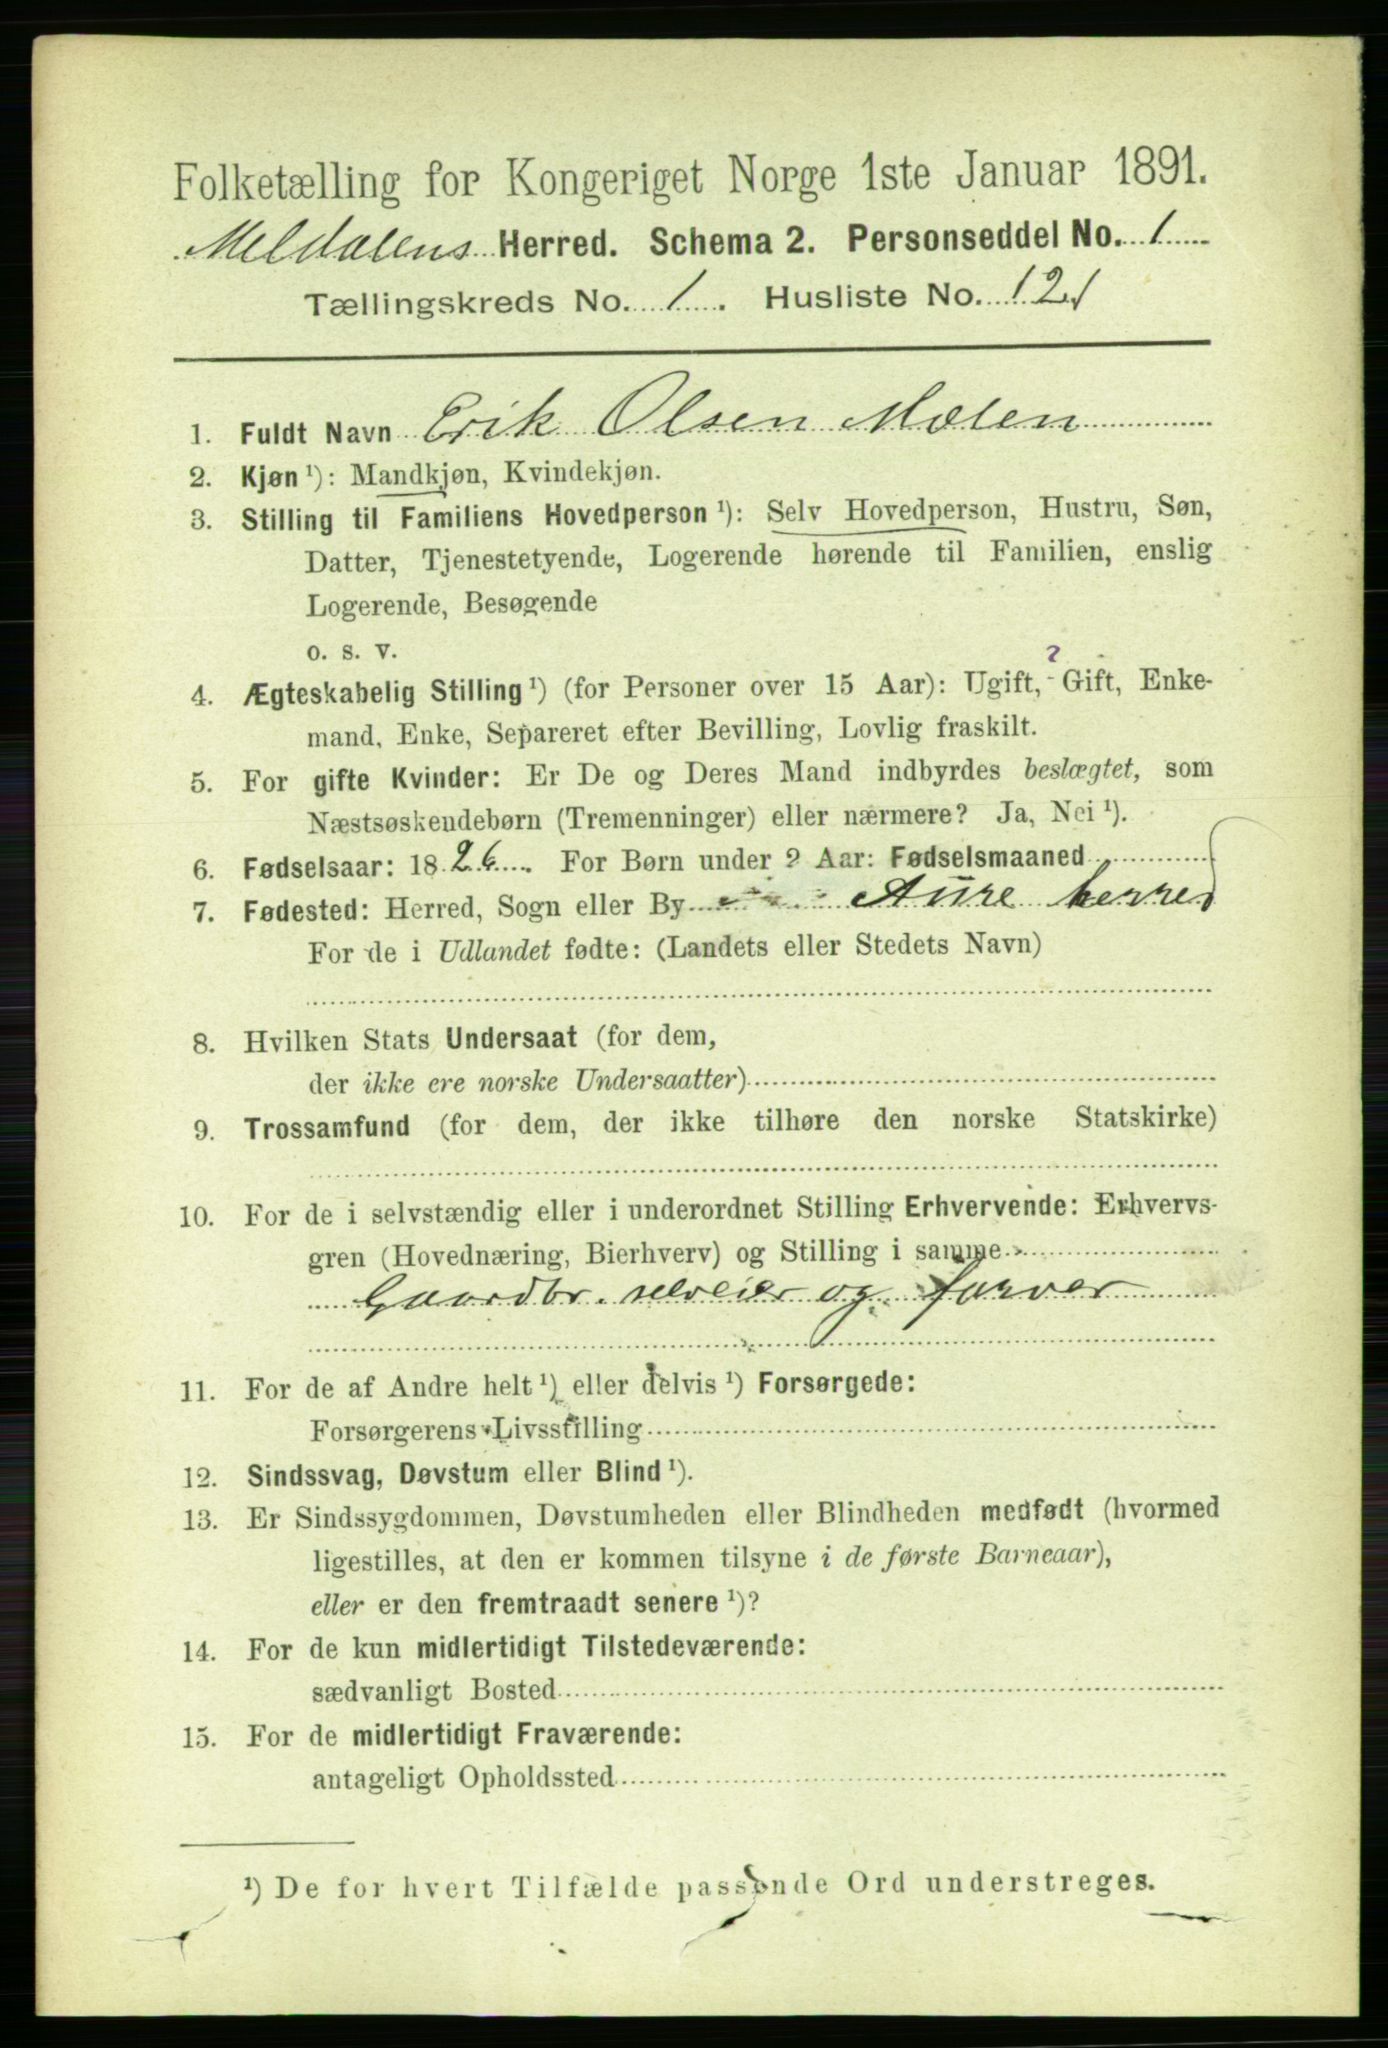 Folketælling for Kongeriget Norge 1ste Januar 1891.
Meldalens Herred. Schema 2. Personseddel No. 1
Tællingskreds No. 1. Husliste No. 121
1. Fuldt Navn Erik Olsen Mølen
2. Kjøn ¹): Mandkjøn, Kvindekjøn.
3. Stilling til Familiens Hovedperson ¹): Selv Hovedperson, Hustru, Søn,
Datter, Tjenestetyende, Logerende hørende til Familien, enslig
Logerende, Besøgende
o. s. v.
?
4. Ægteskabelig Stilling ¹) (for Personer over 15 Aar): Ugift, Gift, Enke-
mand, Enke, Separeret efter Bevilling, Lovlig fraskilt.
5. For gifte Kvinder: Er De og Deres Mand indbyrdes beslægtet, som
Næstsøskendebørn (Tremenninger) eller nærmere? Ja, Nei ¹).
6. Fødselsaar: 1826. For Børn under 2 Aar: Fødselsmaaned
7. Fødested: Herred, Sogn eller By Aure herred
For de i Udlandet fødte: (Landets eller Stedets Navn)
8. Hvilken Stats Undersaat (for dem,
der ikke ere norske Undersaatter)
9. Trossamfund (for dem, der ikke tilhøre den norske Statskirke)
10. For de i selvstændig eller i underordnet Stilling Erhvervende: Erhvervs-
gren (Hovednæring, Bierhverv) og Stilling i samme
Gaardbr. selveier og farver
11. For de af Andre helt ¹) eller delvis ¹) Forsørgede:
Forsørgerens Livsstilling
12. Sindssvag, Døvstum eller Blind ¹).
13. Er Sindssygdommen, Døvstumheden eller Blindheden medfødt (hvormed
ligestilles, at den er kommen tilsyne i de første Barneaar),
eller er den fremtraadt senere ¹)?
14. For de kun midlertidigt Tilstedeværende:
sædvanligt Bosted
15. For de midlertidigt Fraværende:
antageligt Opholdssted
¹) De for hvert Tilfælde passende Ord understreges.